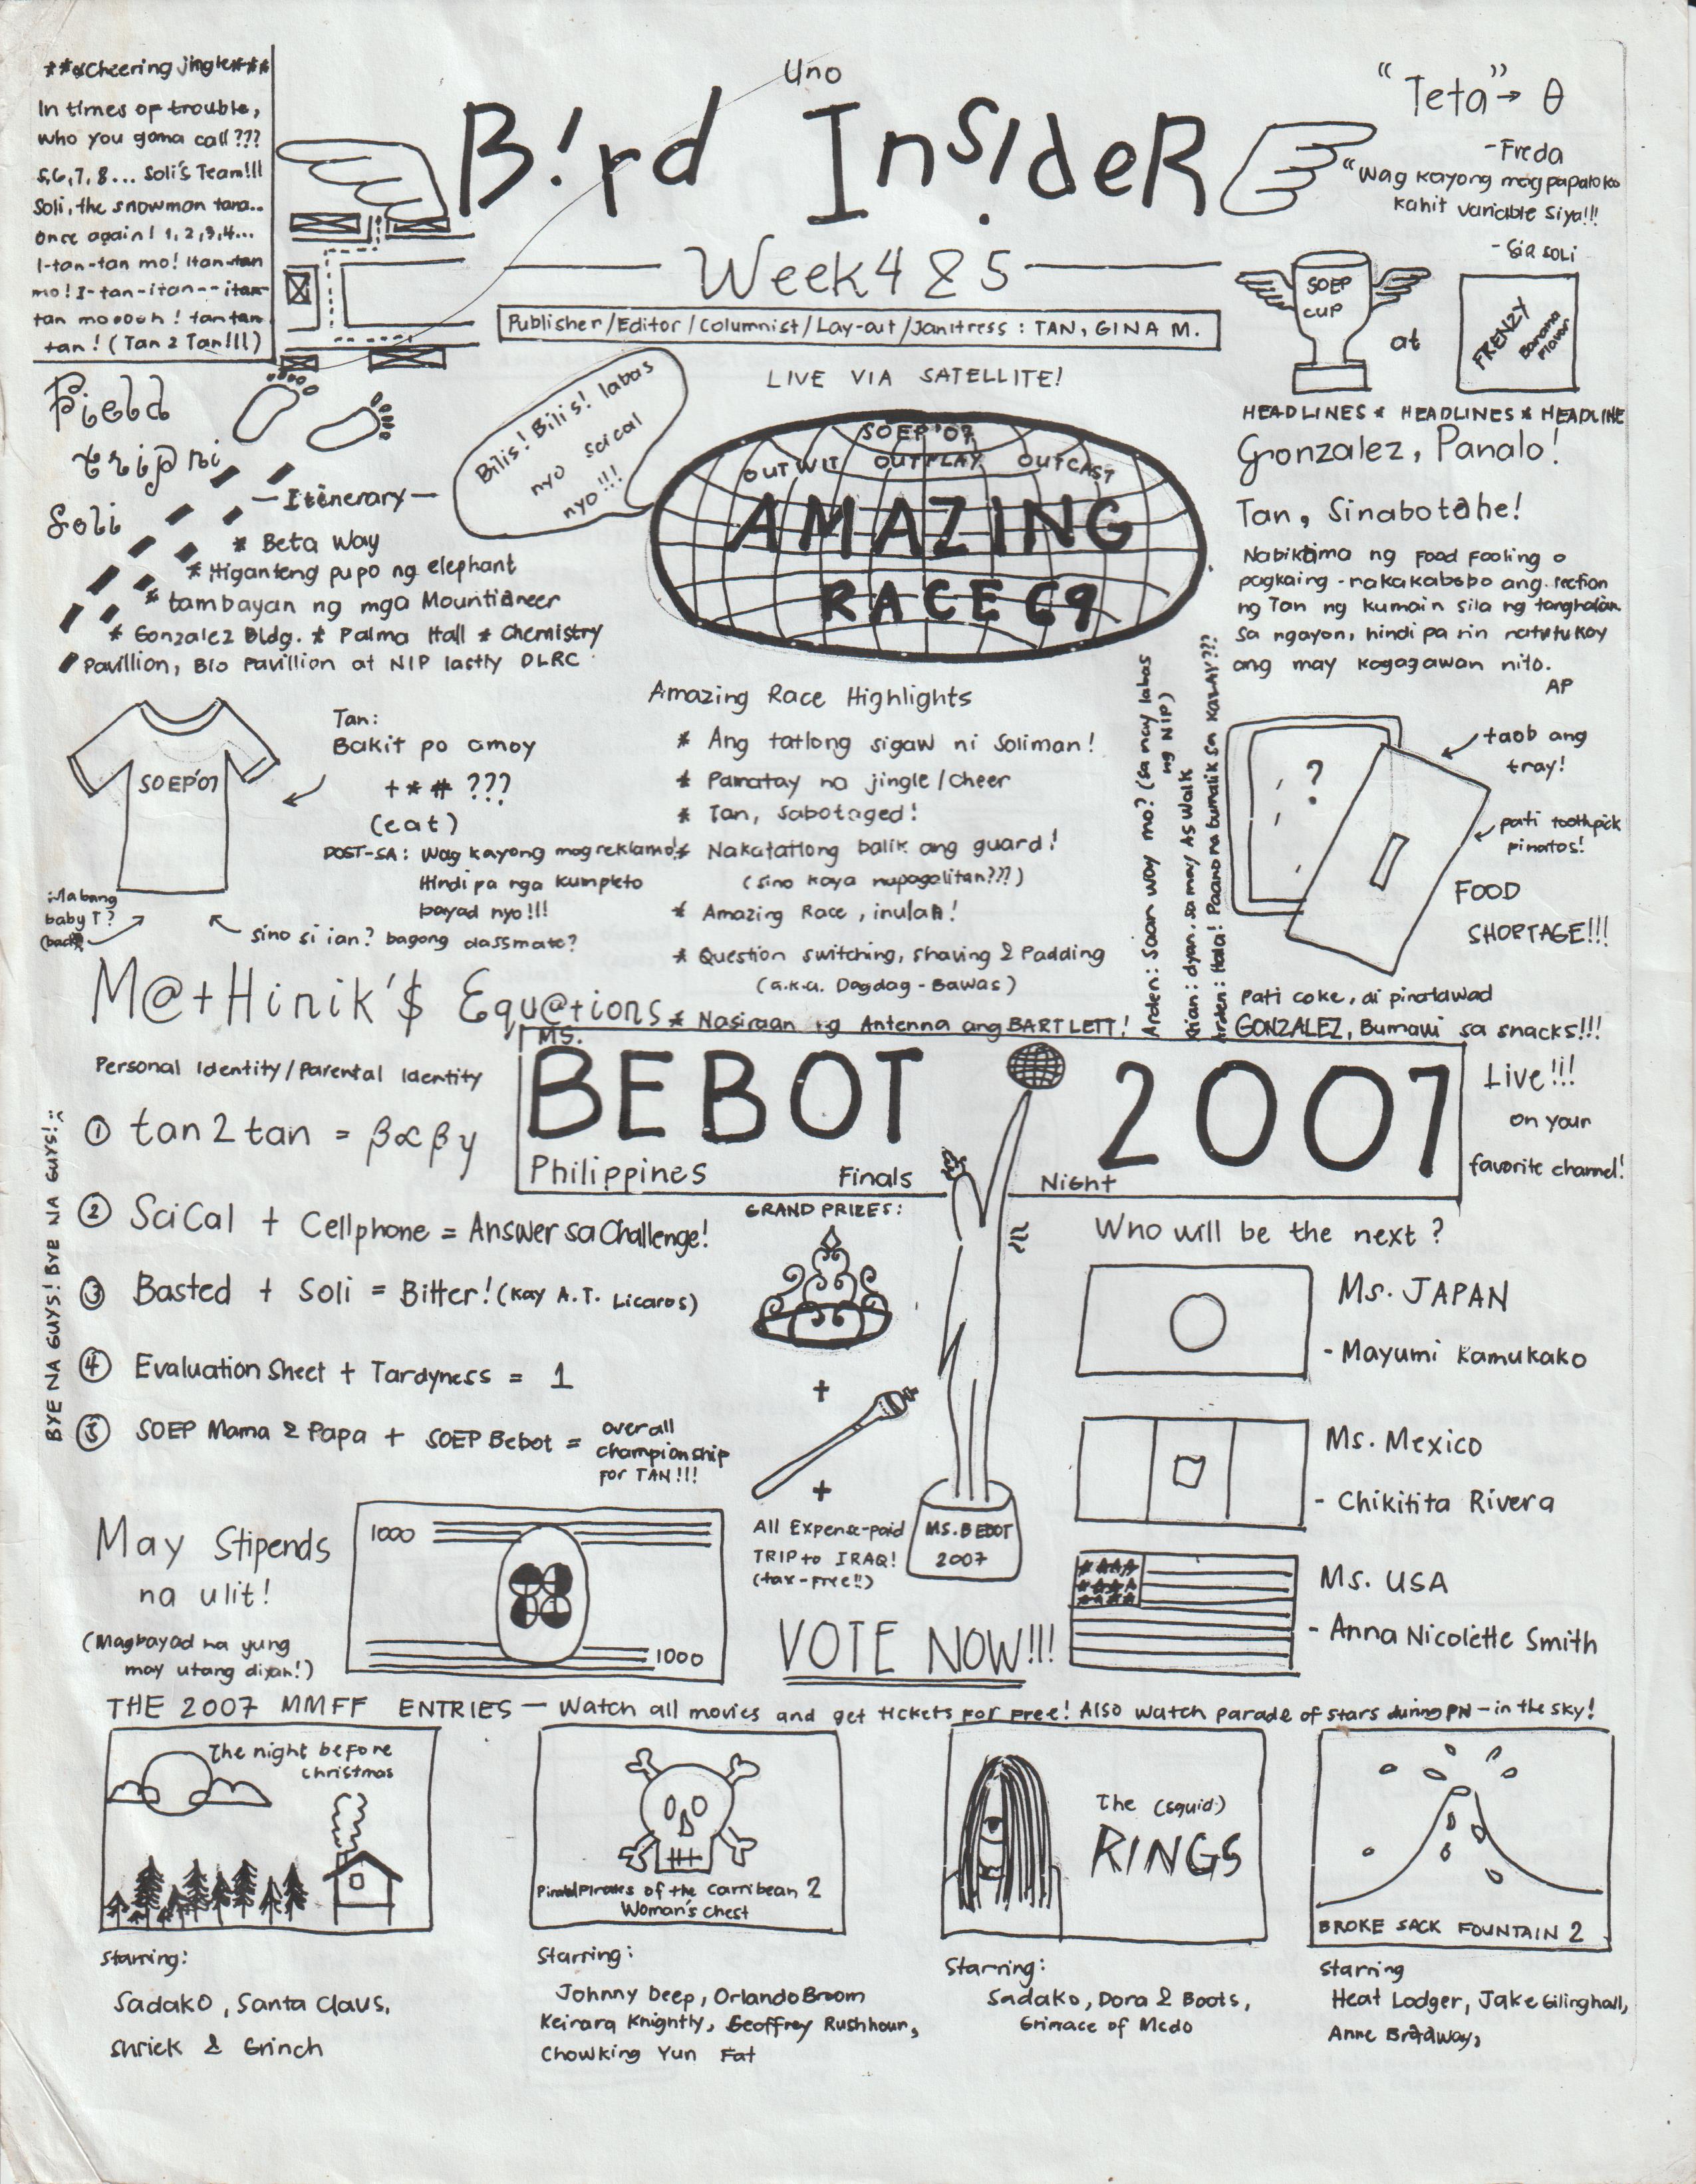 ***Cheering jingle***
In times of trouble,
who you gonna call???
5,6,7,8... Soli's Team!!!
Soli, the snowman tana..
Once again! 1,2,3,4...
I-tan-tan mo! Itan-tan
mo! I-tan-itan--itan-
tan mooooh! tantan
tan! (Tan 2 Tan!!!)
Uno
B!rd InsideR
Week 4 & 5
Publisher/Editor/Columnist/Lay-out/Janitress: TAN, GINA M.
"Teta" → θ
-Freda
"Wag kayong magpapaloko
kahit variable siya!!!
-SIR SOLI
SOEP
CUP
at
FRENZY
Banana
Flavor
Field
trip ni
Soli
—Itinerary—
* Beta Way
* Higanteng pupo ng elephant
* tambayan ng mga Mountianeer
* Gonzalez Bldg. * Palma Hall * Chemistry
Pavillion, Bio Pavillion at NIP lastly DLRC
Bilis! Bilis! labas
nyo scical
nyo!!!
LIVE VIA SATELLITE!
SOEP'07
OUTWIT OUTPLAY OUTCAST
AMAZING
RACE 69
HEADLINES * HEADLINES * HEADLINE
Gonzalez, Panalo!
Tan, Sinabotahe!
Nabiktima ng food fooling o
pagkaing-nakakabobo ang section
ng Tan ng kumain sila ng tanghalian
sa ngayon, hindi pa rin natutukoy
ang may kagagawan nito.
AP
SOEP'07
Tan:
Bakit po amoy
+*# ???
(eat)
POST-SA: Wag kayong magreklamo!
Hindi pa nga kumpleto
bayad nyo!!!
baby T?
(back)
sino si ian? bagong classmate?
Amazing Race Highlights
* Ang tatlong sigaw ni Soliman!
* Pamatay na jingle/cheer
* Tan, Sabotaged!
* Nakatatlong balik ang guard!
(sino kaya napagalitan???)
* Amazing Race, inulan!
* Question switching, shaving & Padding
(a.k.a. Dagdag-Bawas)
* Nasiraan ng Antenna ang BARTLETT!
Arden: Saan way mo? (sa may labas
ng NIP)
Khian: dyan, sa may AS Walk
Arden: Hala! Paano na bumalik sa KALAY???
?
taob ang
tray!
pati toothpick
pinatos!
FOOD
SHORTAGE!!!
Pati coke, di pinatawad
GONZALEZ, Bumawi sa snacks!!!
M@+Hinik'$ Equ@+ions
Personal Identity/Parental Identity
① tan 2 tan = βαβy
② SciCal + Cellphone = Answer sa Challenge!
③ Basted + Soli = Bitter! (Kay A.T. Licaros)
④ Evaluation Sheet + Tardyness = 1
⑤ SOEP Mama & Papa + SOEP Bebot = overall
championship
for TAN!!!
BYE NA GUYS! BYE NA GUYS! :(
MS.
BEBOT 2007
Philippines Finals Night
Live!!!
on your
favorite channel!
GRAND PRIZES:
+
+
All Expense-paid
TRIP to IRAQ!
(tax-free!!)
MS. BEBOT
2007
VOTE NOW!!!
Who will be the next?
Ms. JAPAN
- Mayumi Kamukako
Ms. Mexico
- Chikitita Rivera
Ms. USA
- Anna Nicolette Smith
May Stipends
na ulit!
(Magbayad na yung
may utang diyan!)
1000
1000
THE 2007 MMFF ENTRIES — Watch all movies and get tickets for free! Also watch parade of stars during PN - in the sky!
The night before
christmas
Starring:
Sadako, Santa Claus,
Shriek & Grinch
Pirates of the Carribean 2
Woman's chest
Starring:
Johnny Deep, Orlando Broom
Keirara Knightly, Geoffrey Rushhour,
Chowking Yun Fat
The (squid)
RINGS
Starring:
Sadako, Dora & Boots,
Grimace of Mcdo
BROKE SACK FOUNTAIN 2
Starring
Heat Lodger, Jake Gilinghall,
Anne Bradway,